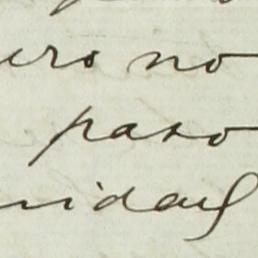 ero no
paso
nidad